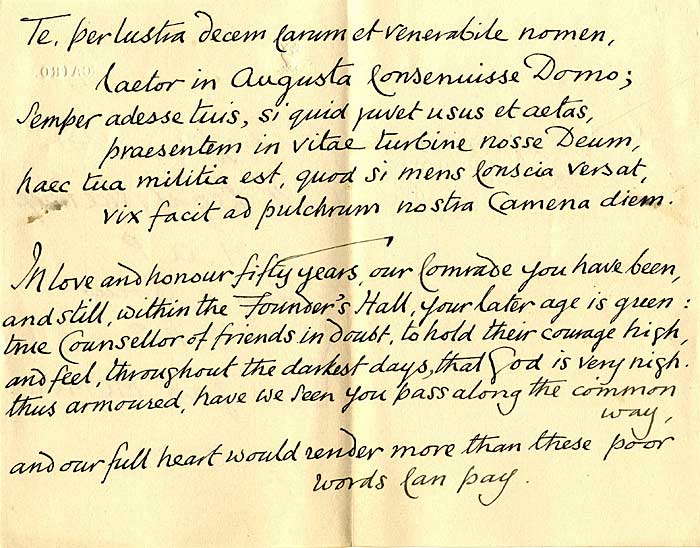 Te, per lustra decem carum et venerabile nomen,
laetor in Augusta Consenuisse Domo;
Semper adesse tuis, si quid juvet usus et aetas,
praesentem in vitae turbine nosse Deum,
haec tua militia est, quod si mens Conscia versat,
vix facit ad pulchrum nostra Camena diem.
In love and honour fifty years, our Comrade you have been,
and still, within the Founder's Hall, your later age is green:
true Counsellor of friends in doubt, to hold their courage high,
and feel, throughout the darkest days, that God is very nigh.
thus armoured, have we seen you pass along the common
way,
and our full heart would render more than these poor
words Can pay.
CAIRO.